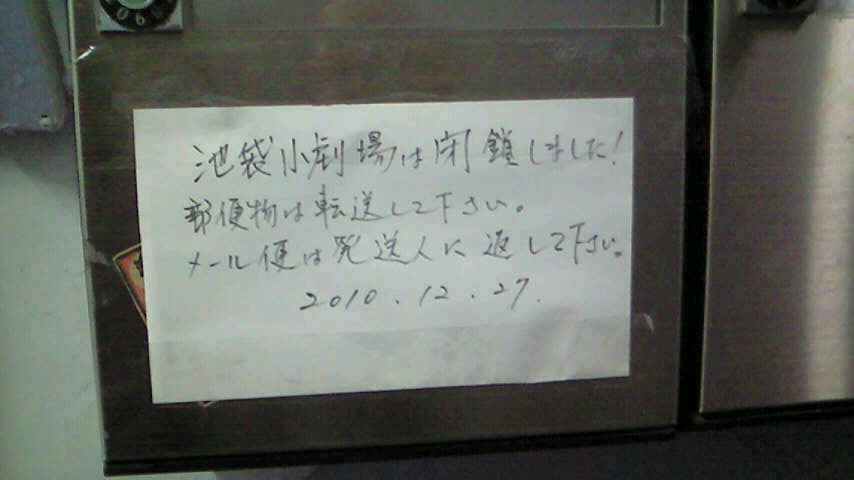 池袋小劇場は閉鎖しました!
郵便物は転送して下さい。
メール便は発送人に返して下さい。
2010.12.27.